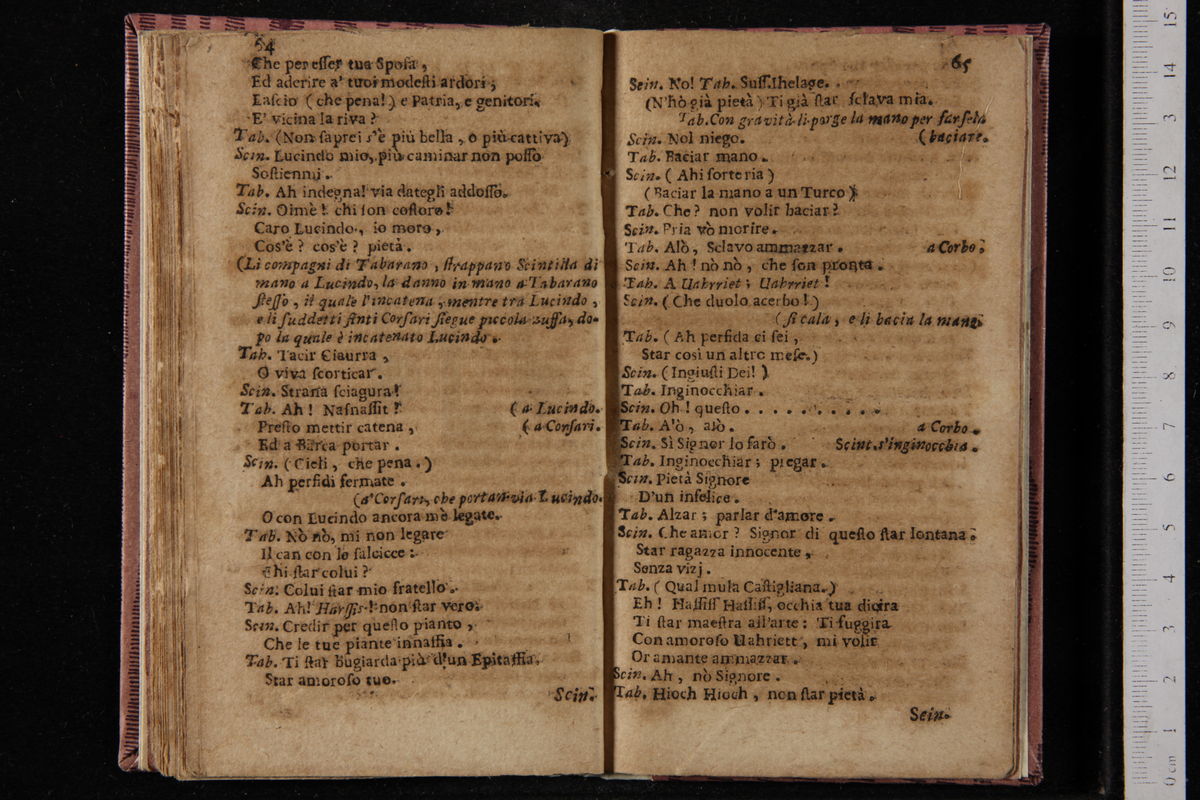 64
Che per esser tua Sposa,
Ed aderire a' tuoi modesti ardori;
Lascio (che pena!) e Patria, e genitori.
E' vicina la riva?
Tab. (Non saprei s'è più bella, o più cattiva)
Scin. Lucindo mio, più caminar non posso
Sostienmi.
Tab. Ah indegna! via dategli addosso.
Scin. Oimè! chi son costoro!
Caro Lucindo, io moro,
Cos'è? cos'è? pietà.
(Li compagni di Tabarano, strappano Scintilla di
mano a Lucindo, la danno in mano a Tabarano
stesso, il quale l'incatena, mentre tra Lucindo,
e li suddetti finti Corsari siegue piccola zuffa, do-
po la quale è incatenato Lucindo.
Tab. Tacir Ciaurra,
O viva scorticar.
Scin. Strana sciagura!
Tab. Ah! Nasnassit! (a Lucindo.
Presto mettir catena, (a Corsari.
Ed a Barca portar.
Scin. (Cieli, che pena.)
Ah perfidi fermate.
(a' Corsari, che portan via Lucindo.
O con Lucindo ancora me legate.
Tab. Nò nò, mi non legare
Il can con le salcicce:
Chi star colui?
Scin. Colui star mio fratello.
Tab. Ah! Harsis! non star vero.
Scin. Credir per questo pianto,
Che le tue piante innaffia.
Tab. Ti star bugiarda più d'un Epitaffia.
Star amoroso tuo.
Scin.
65
Scin. No! Tab. Suss. Ihelage.
(N'hò già pietà) Ti già star sclava mia.
Tab. Con gravità li porge la mano per farsela
Scin. Nol niego. (baciare.
Tab. Baciar mano.
Scin. (Ahi sorte ria)
(Baciar la mano a un Turco)
Tab. Che? non volir baciar?
Scin. Pria vò morire.
Tab. Alò, Sclavo ammazzar. a Corbo.
Scin. Ah! nò nò, che son pronta.
Tab. A Uahrriet; Uahrriet!
Scin. (Che duolo acerbo!)
(si cala, e li bacia la mano.
Tab. (Ah perfida ci sei,
Star così un altro mese.)
Scin. (Ingiusti Dei!)
Tab. Inginocchiar.
Scin. Oh! questo . . . . . . . . . .
Tab. A'ò, alò. a Corbo.
Scin. Sì Signor lo farò. Scint. s'inginocchia.
Tab. Inginocchiar; piegar.
Scin. Pietà Signore
D'un infelice.
Tab. Alzar; parlar d'amore.
Scin. Che amor? Signor di questo star lontana.
Star ragazza innocente,
Senza vizj.
Tab. (Qual mula Castigliana.)
Eh! Hassiss Hassiss, occhia tua dicira
Ti star maestra all'arte: Ti fuggira
Con amoroso Uahriett, mi volir
Or amante ammazzar.
Scin. Ah, nò Signore.
Tab. Hioch Hioch, non star pietà.
Scin.